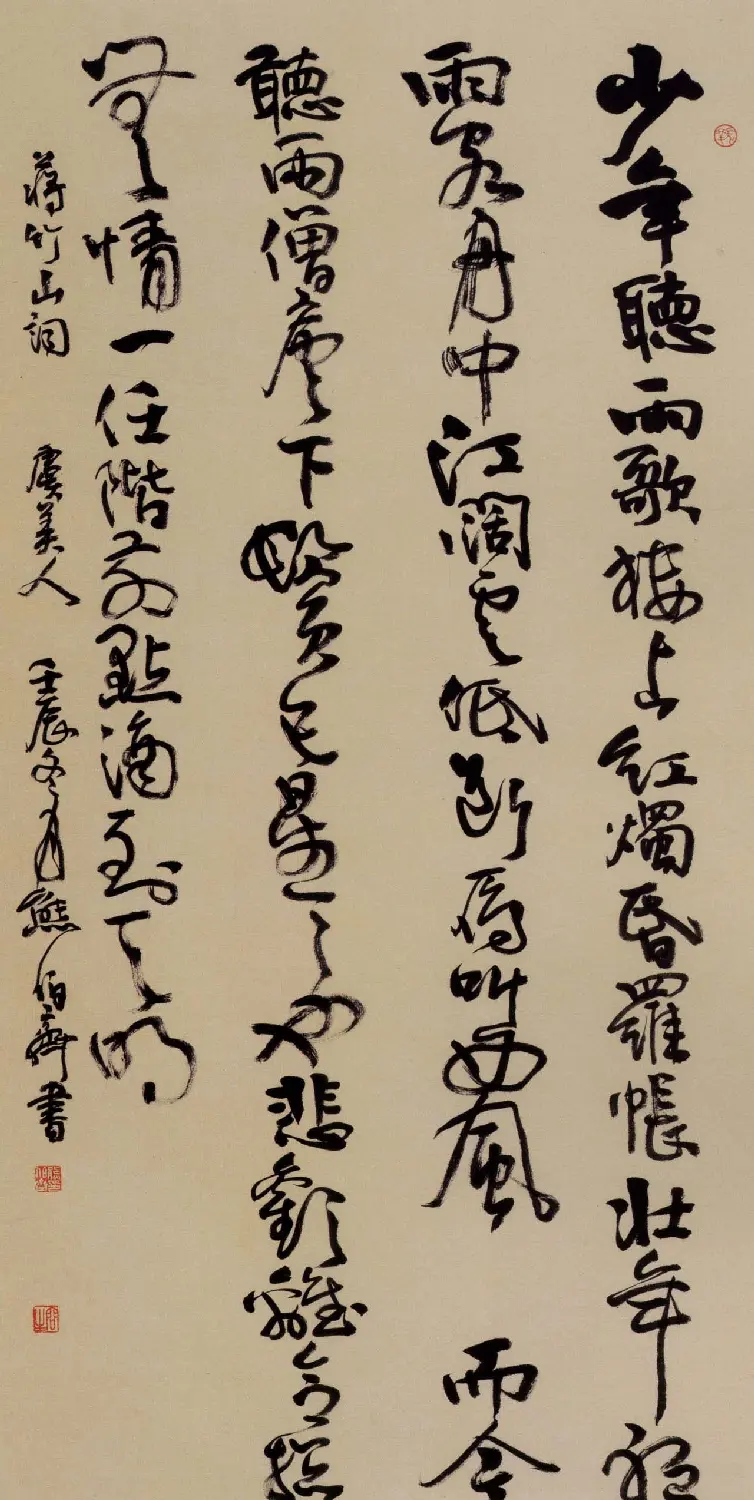 少年聽雨歌樓上紅燭昏羅帳壯年聽
雨客舟中江闊雲低斷雁叫西風 而今
聽雨僧廬下鬢已星〻也悲歡離合總
無情一任階前點滴到天明
蔣竹山詞 虞美人 壬辰冬月熊伯齊書